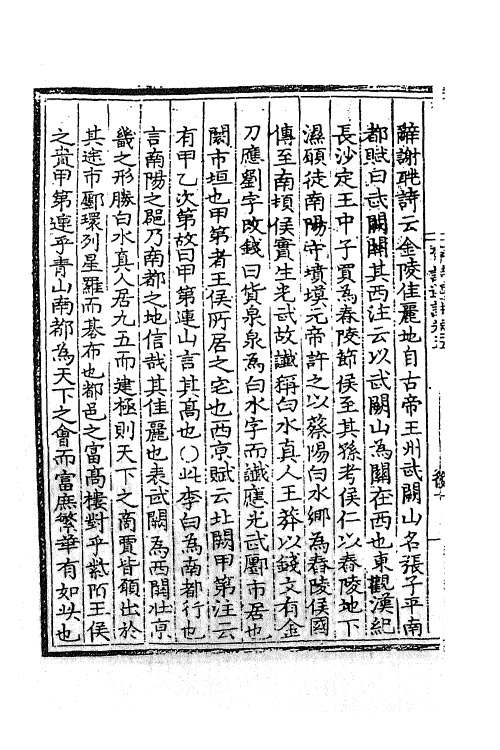 辭謝眺詩云金陵佳麗地自古帝王州武闕山名張子平南
都賦曰武闕關其西注云以武闕山為關在西也東觀漢紀
長沙定王中子買為舂陵節侯至其孫考侯仁以舂陵地下
濕願徒南陽守墳墓元帝許之以蔡陽白水鄉為舂陵侯國
傳至南頓侯實生光武故讖稱白水真人王莽以錢文有金
刀應劉字改錢曰貨泉泉為白水字而讖應光武酈市居也
闕市垣也甲第者王侯所居之宅也西京賦云北闕甲第注云
有甲乙次第故曰甲第連山言其高也〇此李白為南都行也
言南陽之邑乃南都之地信哉其佳麗也表武闕為西關壯京
畿之形勝白水真人居九五而建極則天下之商賈皆願出於
其途市酈環列星羅而棊布也都邑之富高樓對乎紫陌王侯
之貴甲第連乎青山南都為天下之會而富庶繁華有如此也